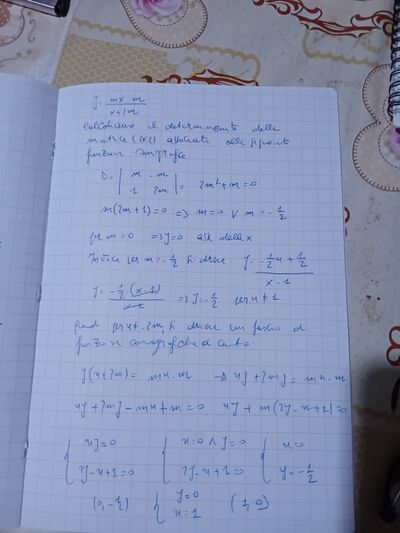 y = mx - m / x + 2m
Calcoliamo il determinante della
matrice (2x2) associata alla
funzione omografica
D = | m -m | = 2m² + m = 0
| 1 2m |
m(2m+1) = 0 => m = 0 ∨ m = -1/2
per m = 0 => y = 0 asse delle x
Invece per m = -1/2 si ottiene y = -1/2 x + 1/2 / x - 1
y = -1/2 (x-1) / x-1 => y = -1/2 per x ≠ 1
Quindi per x ≠ -2m, si ottiene un fascio di
funzioni omografiche di
y(x+2m) = mx - m -> xy + 2my = mx - m
xy + 2my - mx + m = 0 xy + m(2y - x + 1) = 0
{ xy = 0 { x = 0 ∧ y = 0 { x = 0
{ 2y - x + 1 = 0 { 2y - x + 1 = 0 { y = -1/2
(0, -1/2) { y = 0 (1, 0)
{ x = 1